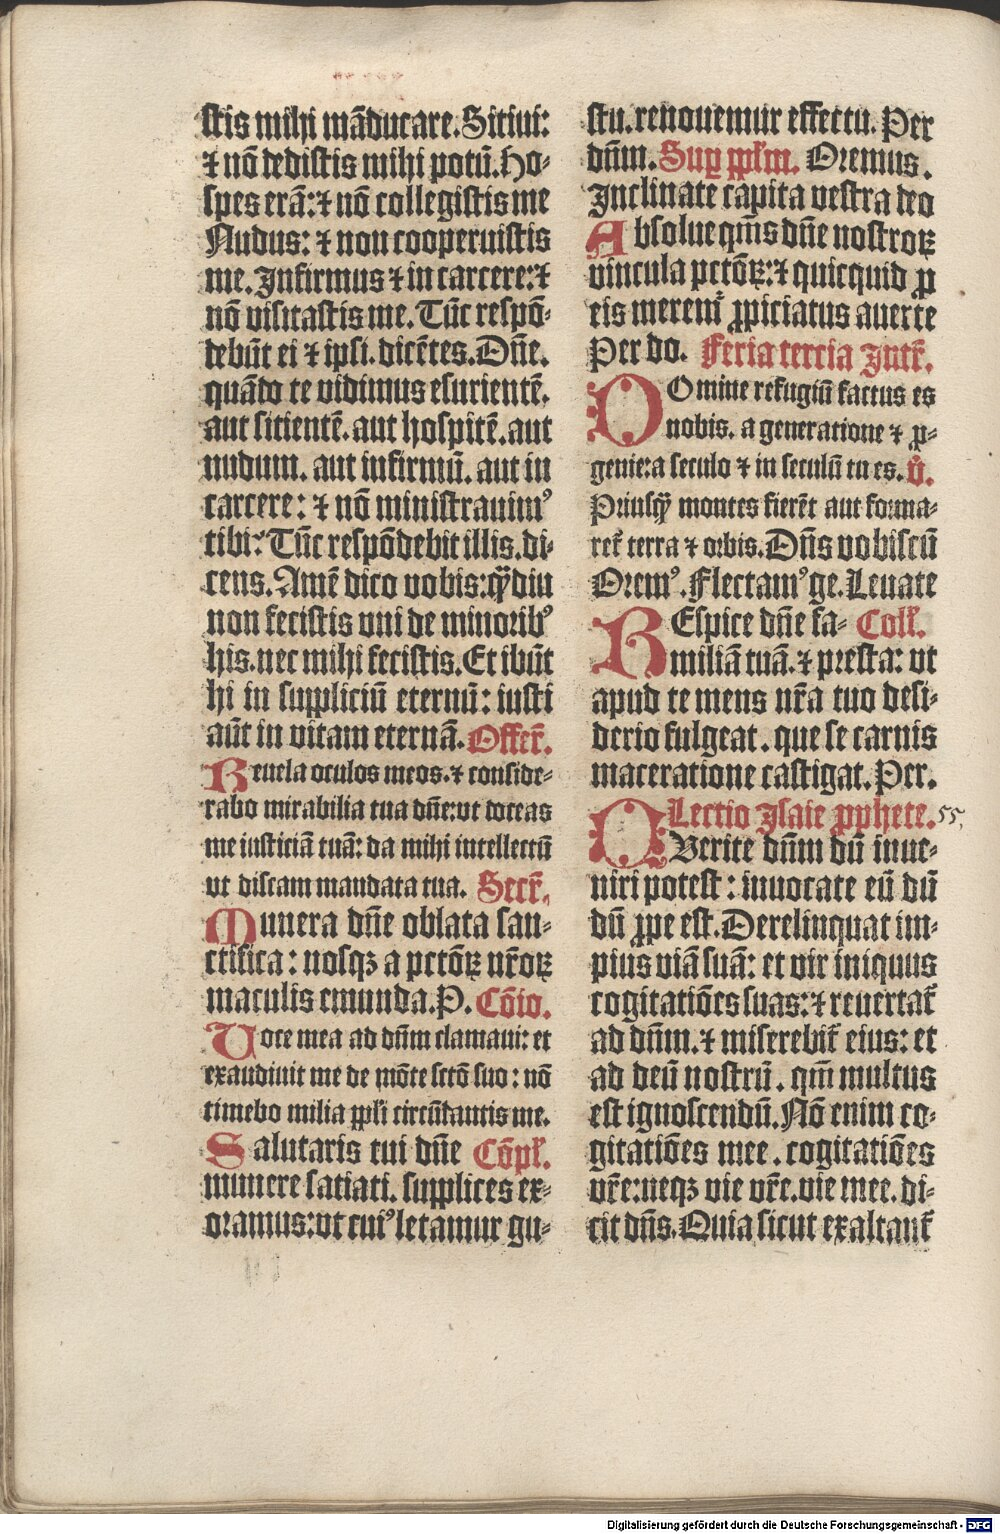 stis mihi mãducare. Sitiui:
⁊ nõ dedistis mihi potũ. Ho-
spes erã: ⁊ nõ collegistis me
Nudus: ⁊ non cooperuistis
me. Infirmus ⁊ in carcere: ⁊
nõ visitastis me. Tũc respõ-
debũt ei ⁊ ipsi. dicẽtes. Dñe.
quãdo te vidimus esurientẽ.
aut sitientẽ. aut hospitẽ. aut
nudum. aut infirmũ. aut in
carcere: ⁊ nõ ministrauimꝰ
tibi? Tũc respõdebit illis. di-
cens. Amẽ dico vobis: qͣ̃diu
non fecistis vni de minoribꝰ
his. nec mihi fecistis. Et ibũt
hi in suppliciũ eternũ: iusti
aũt in vitam eternã. Offer̃.
Reuela oculos meos. ⁊ conside-
rabo mirabilia tua dñe: vt doceas
me iusticiã tuã: da mihi intellectũ
vt discam mandata tua. Secr̃.
Munera dñe oblata san-
ctifica: nosqꝫ a pctõꝝ nr̃oꝝ
maculis emunda. P. Cõio.
Voce mea ad dñm clamaui: et
exaudiuit me de mõte sctõ suo: nõ
timebo milia ppl̃i circũdantis me.
Salutaris tui dñe Cõpl̃.
munere satiati. supplices ex-
oramus: vt cuiꝰ letamur gu-
stu. renouemur effectu. Per
dñm. Suꝑ ppl̃m. Oremus.
Inclinate capita vestra deo
Absolue qm̃s dñe nostroꝝ
vincula pctõꝝ: ⁊ quicquid ꝓ
eis meremr̃ ꝓpiciatus auerte
Per do. Feria tercia Intr̃.
DOmine refugiũ factus es
nobis. a generatione ⁊ ꝓ-
genie: a seculo ⁊ in seculũ tu es. v̊.
Priusqͣ̃ montes fierẽt aut forma-
ret̃ terra ⁊ orbis. Dñs vobiscũ
Oremꝰ. Flectamꝰ ge. Leuate
REspice dñe fa- Coll̃.
miliã tuã. ⁊ presta: vt
apud te mens nr̃a tuo desi-
derio fulgeat. que se carnis
maceratione castigat. Per.
Lectio Isaie ꝓphete. 55,
QVerite dñm dũ inue-
niri potest: inuocate eũ dũ
dũ ꝓpe est. Derelinquat im-
pius viã suã: et vir iniquus
cogitatiões suas: ⁊ reuertat̃
ad dñm. ⁊ miserebit̃ eius: et
ad deũ nostrũ. qm̃ multus
est ignoscendũ. Nõ enim co-
gitatiões mee. cogitatiões
vr̃e: neqꝫ vie vr̃e. vie mee. di-
cit dñs. Quia sicut exaltant̃
Digitalisierung gefördert durch die Deutsche Forschungsgemeinschaft - DFG